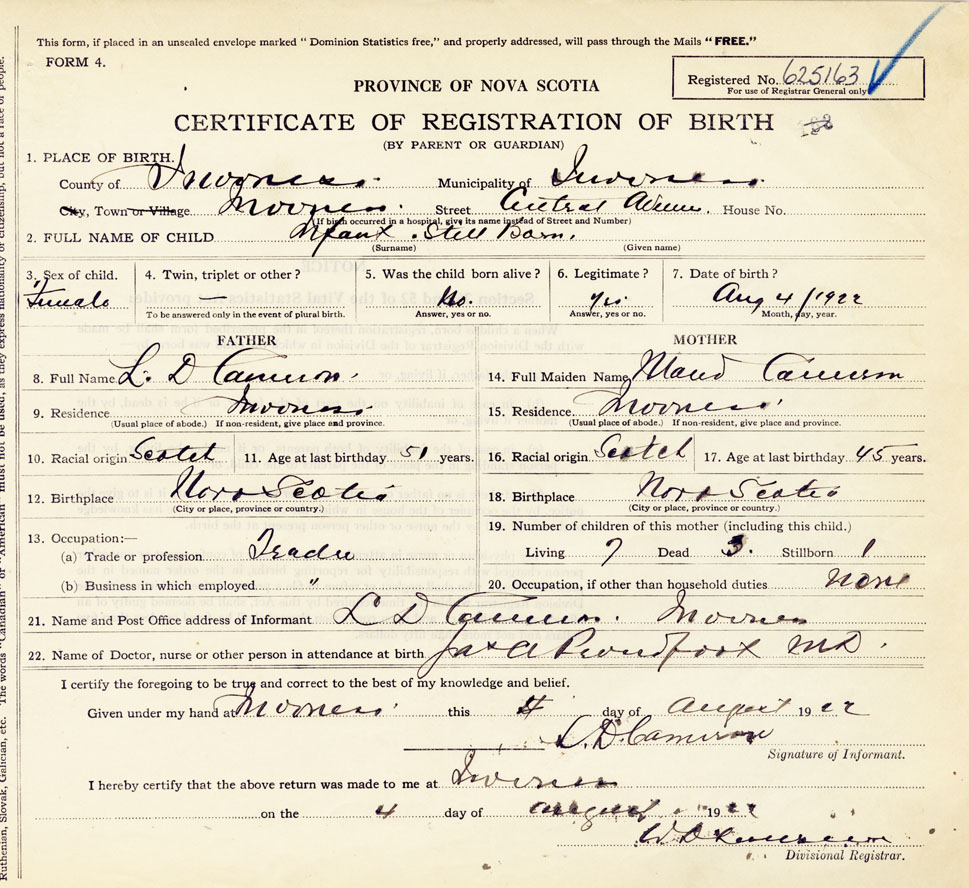 This form, if placed in an unsealed envelope marked “Dominion Statistics free,” and properly addressed, will pass through the Mails “FREE.”
FORM 4.
Registered No. 625163
For use of Registrar General only
PROVINCE OF NOVA SCOTIA
CERTIFICATE OF REGISTRATION OF BIRTH
(BY PARENT OR GUARDIAN)
1. PLACE OF BIRTH.
County of Inverness Municipality of Inverness
City, Town or Village Inverness Street Central Avenue. House No.
(If birth occurred in a hospital, give its name instead of Street and Number)
2. FULL NAME OF CHILD Infant Still Born.
(Surname) (Given name)
3. Sex of child. 4. Twin, triplet or other? 5. Was the child born alive? 6. Legitimate? 7. Date of birth?
Female — No. Yes Aug 4/1922
To be answered only in the event of plural birth. Answer, yes or no. Answer, yes or no. Month, day, year.
FATHER MOTHER
8. Full Name L. D Cameron. 14. Full Maiden Name Maud Cameron
9. Residence Inverness 15. Residence Inverness
(Usual place of abode.) If non-resident, give place and province. (Usual place of abode.) If non-resident, give place and province.
10. Racial origin Scotch 11. Age at last birthday 51 years. 16. Racial origin Scotch 17. Age at last birthday 45 years.
12. Birthplace Nova Scotia 18. Birthplace Nova Scotia
(City or place, province or country.) (City or place, province or country.)
19. Number of children of this mother (including this child.)
13. Occupation:—
(a) Trade or profession Trader Living 7 Dead 3. Stillborn 1
(b) Business in which employed " 20. Occupation, if other than household duties none
21. Name and Post Office address of Informant L D Cameron. Inverness
22. Name of Doctor, nurse or other person in attendance at birth Jas A Proudfoot MD.
I certify the foregoing to be true and correct to the best of my knowledge and belief.
Given under my hand at Inverness this 4 day of August 1922
L. D. Cameron
Signature of Informant.
I hereby certify that the above return was made to me at Inverness
on the 4 day of August 1922
Divisional Registrar.
Ruthenian, Slovak, Galician, etc. The words “Canadian” or “American” must not be used, as they express nationality or citizenship, but not a race of people.